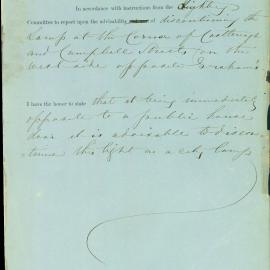 In accordance with instructions from the Lighting
Committee to report upon the advisability of discontinuing the
Lamp at the Corner of Castlereagh
and Campbell Streets on the
west side opposite
I have the honor to state that it being immediately
opposite to a public house
door it is advisable to discon-
tinue this light as a city lamp